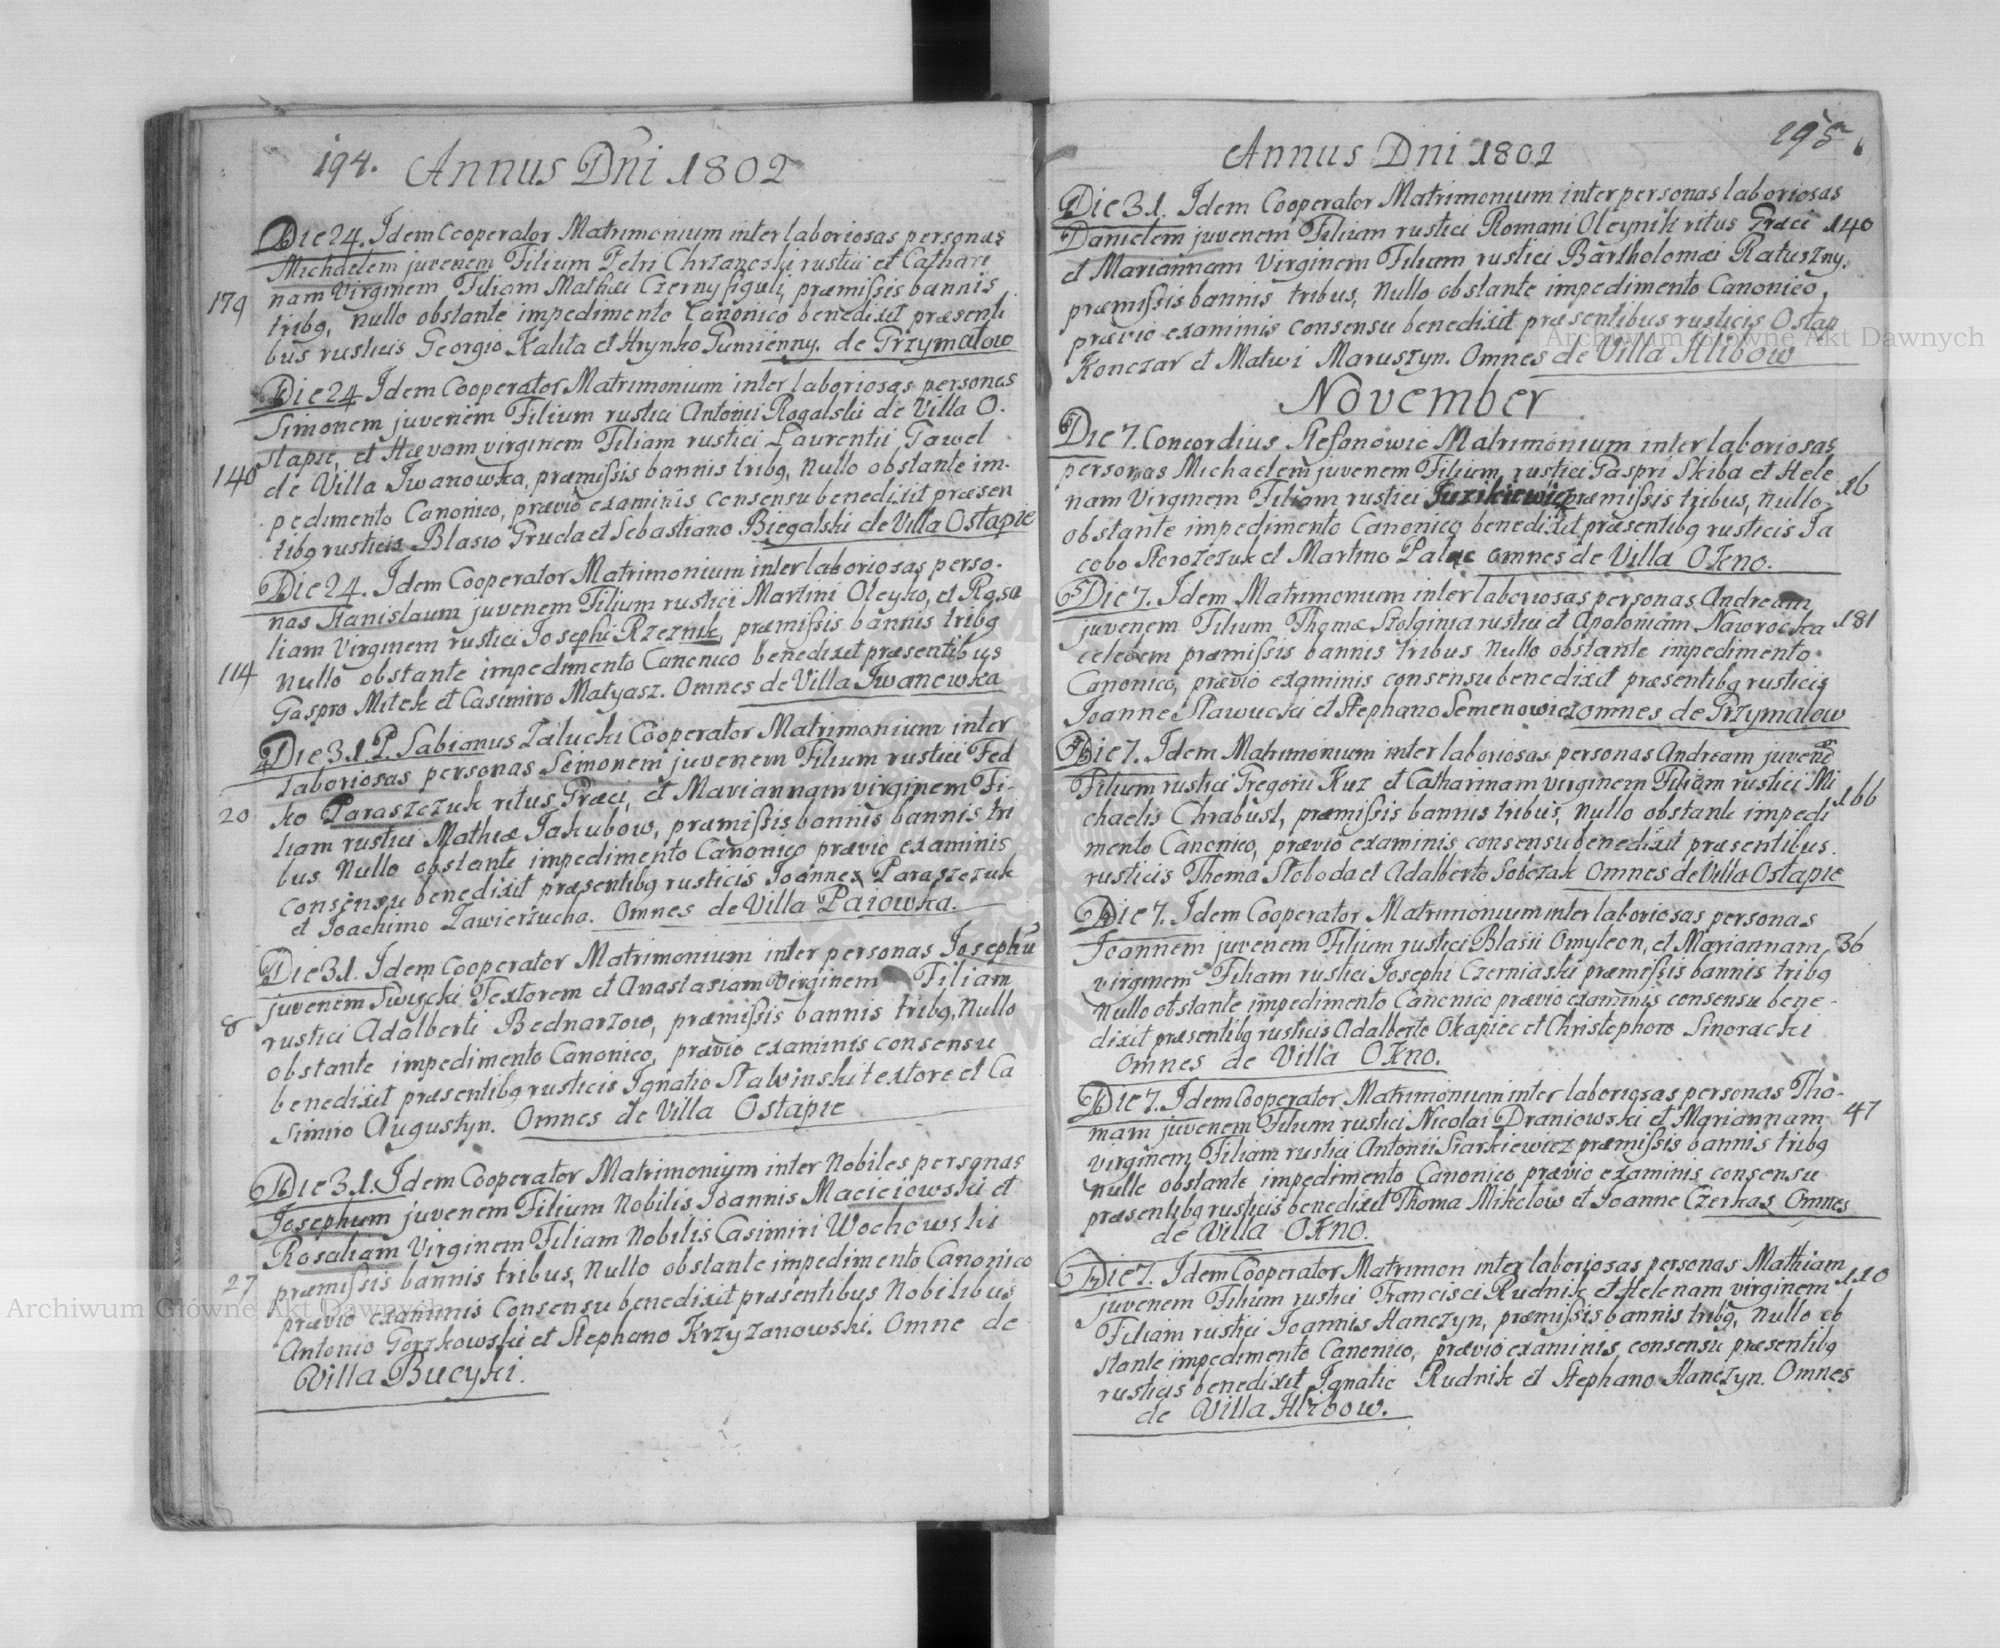 194. Annus Dni 1802
Die 24. Idem Cooperator Matrimonium inter laboriosas personas
Michaelem juvenem Filium Petri Chrzanoski rustici et Cathari
179
nam Virginem Filiam Mathæi Czerny figuli, præmissis bannis
tribq, Nullo obstante impedimento Canonico benedixit præsenti
bus rusticis Georgio Kalita et Hrynko Pumienny. de Grzymałow
Die 24 Idem Cooperator Matrimonium inter laboriosas personas
Simonem juvenem Filium rustici Antonii Rogalski de Villa O.
stapie, et Hævam virginem Filiam rustici Laurentii Gaweł
140
de Villa Iwanowka, præmissis bannis tribq, Nullo obstante im.
pedimento Canonico, prævio examinis consensu benedixit præsen
tibq rusticis Blasio Gruda et Sebastiano Biegalski de Villa Ostapie
Die 24. Idem Cooperator Matrimonium inter laboriosas perso.
nas Stanislaum juvenem Filium rustici Martini Oleyko, et Rosa
liam Virginem rustici Josephi Rzeznik, præmissis bannis tribq
114
Nullo obstante impedimento Canonico benedixit præsentibus
Gaspro Mitek et Casimiro Matyasz. Omnes de Villa Iwanowka
Die 31. P. Fabianus Załucki Cooperator Matrimonium inter
laboriosas personas Semonem juvenem Filium rustici Fed
20
ko Paraszczuk ritus Græci, et Mariannam virginem Fi-
liam rustici Mathiæ Jakubow, præmissis bannis bannis tri
bus Nullo obstante impedimento Canonico prævio examinis
consensu benedixit præsentibq rusticis Joannex Paraszczuk
et Joachimo Zawierzucha. Omnes de Villa Paiowka.
Die 31. Idem Cooperator Matrimonium inter personas Josephū
juvenem Swięcki Textorem et Anastasiam Virginem Filiam
8
rustici Adalberti Bednarzow, præmissis bannis tribq, Nullo
obstante impedimento Canonico, prævio examinis consensu
benedixit præsentibq rusticis Ignatio Stalvinski textore et Ca
simiro Augustyn. Omnes de Villa Ostapie
Die 31. Idem Cooperator Matrimonium inter Nobiles personas
Josephum juvenem Filium Nobilis Joannis Maciciowski et
Rosaliam Virginem Filiam Nobilis Casimiri Wochowski
27
præmissis bannis tribus, Nullo obstante impedimento Canonico
prævio examinis Consensu benedixit præsentibus Nobilibus
Antonio Gorzkowski et Stephano Krzyzanowski. Omne de
Villa Bucyki.
Annus Dni 1802 195
Die 31. Idem Cooperator Matrimonium inter personas laboriosas
Danielem juvenem Filium rustici Romani Oleynik ritus Græci 140
et Mariannam Virginem Filiam rustici Bartholomæi Ratuszny.
præmissis bannis tribus, Nullo obstante impedimento Canonico,
prævio examinis consensu benedixit præsentibus rusticis Ostap
Konczar et Matwi Maruszyn. Omnes de Villa Hlibow
November
Die 7. Concordius Stefanowic Matrimonium inter laboriosas
personas Michaelem juvenem Filium rustici Gaspri Skiba et Hele
nam Virginem Filiam rustici præmissis tribus, Nullo 16
obstante impedimento Canonico benedixit præsentibq rusticis Ja
cobo Storozczuk et Martino Palac omnes de Villa OKno.
Die 7. Idem Matrimonium inter laboriosas personas Andream
juvenem Filium Thomæ Stolginia rustici et Apoloniam Nawrocka 181
celebem præmissis bannis tribus Nullo obstante impedimento
Canonico, prævio examinis consensu benedixit præsentibq rusticis
Joanne Sławucki et Stephano Semenowicz omnes de Grzymałow
Die 7. Idem Matrimonium inter laboriosas personas Andream juvenē
Filium rustici Gregorii Kuz et Catharinam virginem Filiam rustici Mi
chaelis Chrabust, præmissis bannis tribus, Nullo obstante impedi 166
mento Canonico, prævio examinis consensu benedixit præsentibus.
rusticis Thoma Słoboda et Adalberto Sobczak Omnes de Villa Ostapie
Die 7. Idem Cooperator Matrimonium inter laboriosas personas
Joannem juvenem Filium rustici Blasii Omyleon, et Mariannam 36
virginem Filiam rustici Josephi Czerniaski præmissis bannis tribq
Nullo obstante impedimento Canonico prævio examinis consensu bene-
dixit præsentibq rusticis Adalberto Okapiec et Christophoro Sinoracki
Omnes de Villa OKno.
Die 7. Idem Cooperator Matrimonium inter laboriosas personas Tho-
mam juvenem Filium rustici Nicolai Draniowski et Mariannam 47
virginem Filiam rustici Antonii Siarkiewicz præmissis bannis tribq
Nullo obstante impedimento Canonico prævio examinis consensu
præsentibq rusticis benedixit Thoma Mikelow et Joanne Czerkas Omnes
de Villa OKno.
Die 7. Idem Cooperator Matrimon inter laboriosas personas Mathiam
juvenem Filium rustici Francisci Rudnik et Helenam virginem 110
Filiam rustici Joannis Hanczyn, præmissis bannis tribq, Nullo ob
stante impedimento Canonico, prævio examinis consensu præsentibq
rusticis benedixit Ignatio Rudnik et Stephano Hanczyn. Omnes
de Villa Hlibow.
Archiwum Główne Akt Dawnych
Archiwum Główne Akt Dawnych